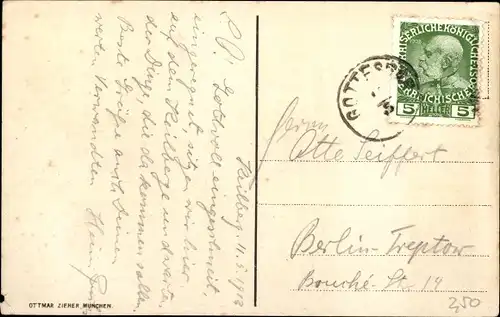 Keilberg 11.5.1913
L. O. Gottvoll eingeschneit,
eingeregnet, sitzen wir hier
auf dem Keilberge und warten
der Dinge, die da kommen sollen.
Beste Grüße auch Deinen
werten Verwandten
OTTMAR ZIEHER, MÜNCHEN.
KAISERLICHE KÖNIGLICHE
ÖSTERREICHISCHE
5 HELLER 5
GOTTESG
Herrn
Otto Seiffert
Berlin-Treptow
Bouché-Str. 14
2,50